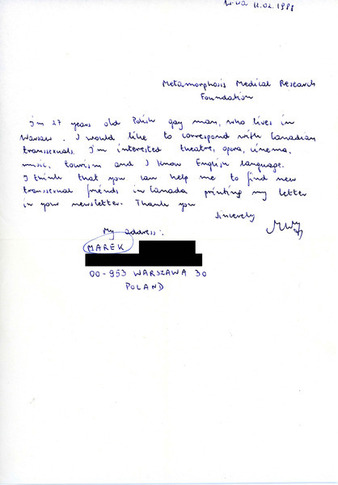 11.02.1988
Metamorphosis Medical Research
Foundation
I'm 27 years old Polish gay man, who lives in
Warsaw. I would like to correspond with Canadian
transsexuals. I'm interested theatre, opera, cinema,
music, tourism and I know English language.
I think that you can help me to find new
transsexual friends in Canada printing my letter
in your newsletter. Thank you
Sincerely
My address:
MAREK
00-953 WARSZAWA 30
POLAND